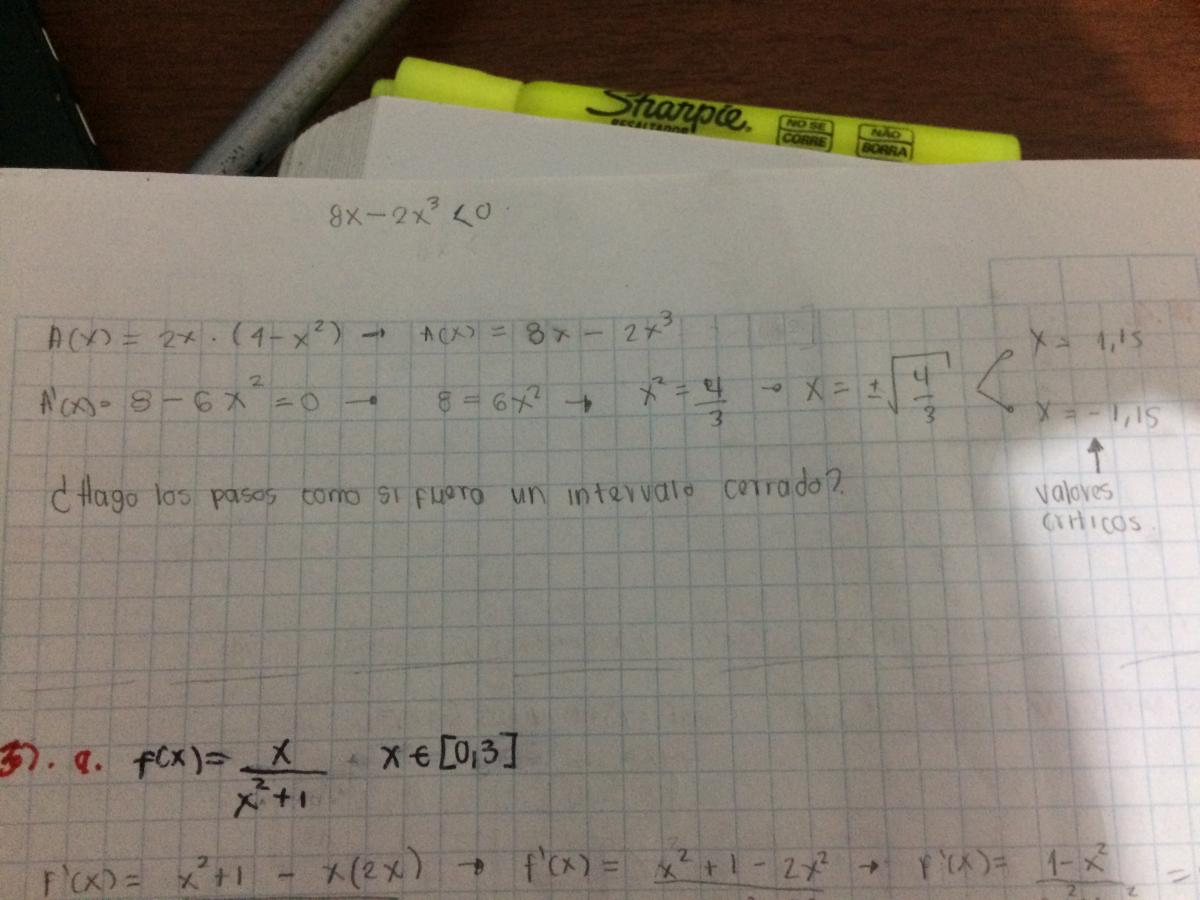 Sharpie.
RESALTADOR
NO SE CORRE
NÃO BORRA
8x-2x³ <0
A(x) = 2x · (4-x²) → A(x) = 8x - 2x³
A'(x)= 8 - 6x² = 0 → 8 = 6x² → x² = 4/3 → x = ±√(4/3)
x = 1,15
x = -1,15
valores críticos.
¿Hago los pasos como si fuera un intervalo cerrado?
3). a. f(x)= x/(x²+1) x ∈ [0,3]
f'(x) = x²+1 - x(2x) → f'(x) = x²+1-2x² → f'(x)= 1-x² =